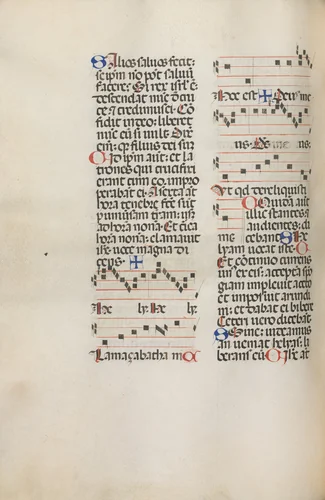 S Alios saluos fecit:
seipm no pot saluu
facere: Si rex isrl e:
descendat nuc d cru
ce 7 credimus ei: Co
fidit in deo: liberet
nuc eu si uult. Dix
em: qr filius dei su
O Id ipm aut: et la
trones qui crucifixi
erant cum eo: impro
perabat ei. A sexta at
hora tenebre fce sut
p uniuersam terram: usq
ad hora nona: Et circa
hora nona: clamauit
ihs uoce magna di
cens. ✠
He ly: he ly:
Lamazabatha ni O
Hoc est ✠ Deus me
us: Ds me us:
Vt qd dereliquisti
me O Quida aut
illic stantes 7
audientes: di
cebant: S He
lyam uocat iste. O
Et continuo currens
unus ex eis: accepta spo
giam impleuit aceto
et imposuit arundi
ni: et dabat ei bibere
Ceteri uero dicebat:
S Sine: uideamus
an ueniat helyas: li
berans eu O Ihs at